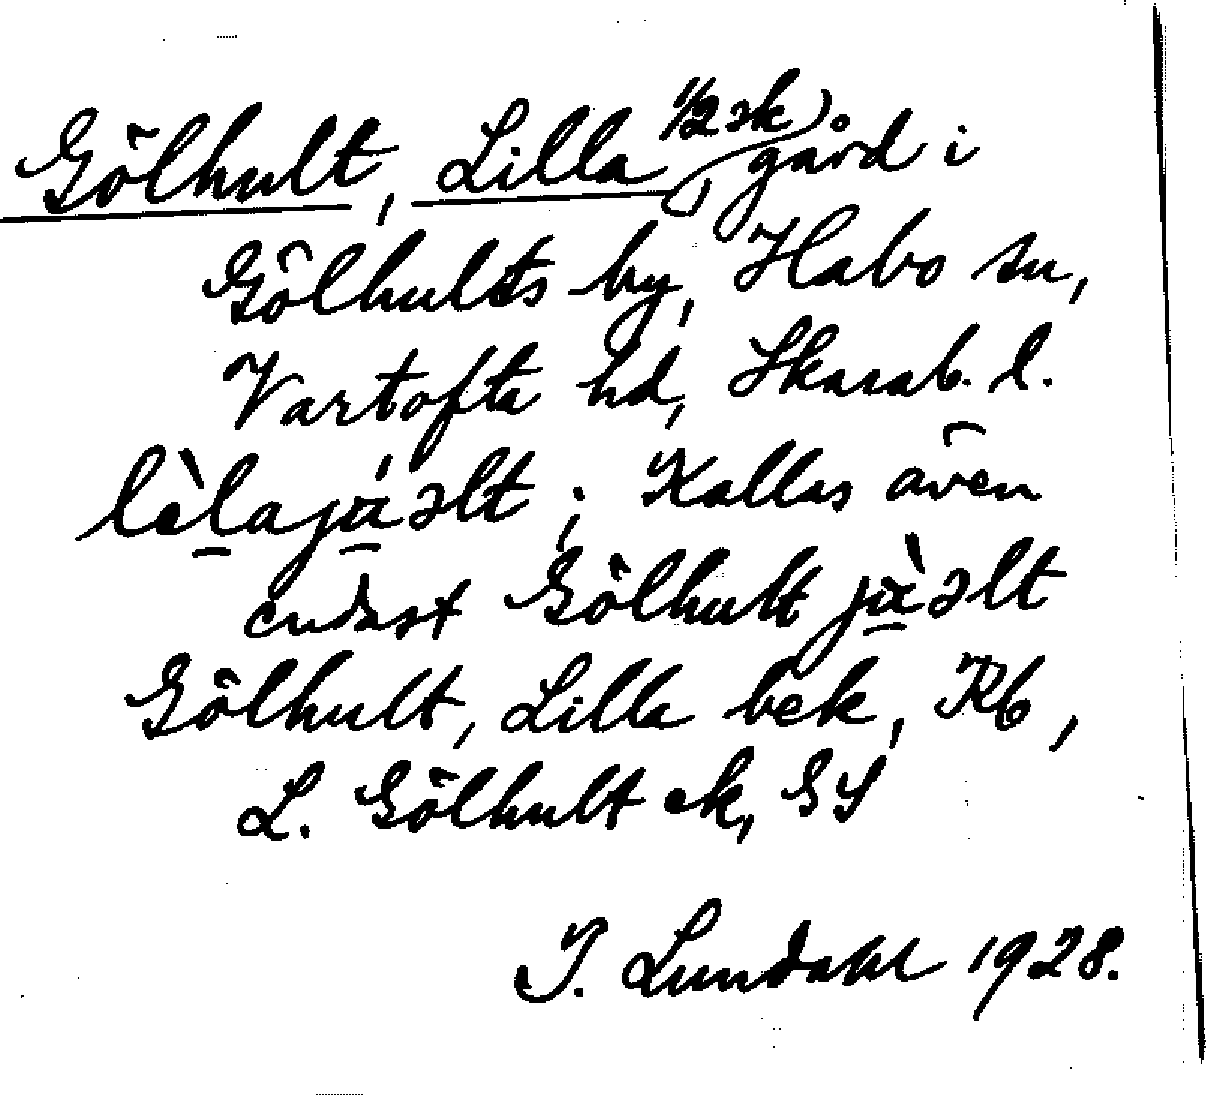 Gölhult, Lilla, 1/2 sk gård i
Gölhults by, Habo sn,
Vartofta hd, Skarab. l.
lèlajɑ́əlt; Kallas även
endast Gölhult jɑ̀əlt
Gölhult, Lilla bek, Rb,
L. Gölhult ek, GS
I. Lundahl 1928.